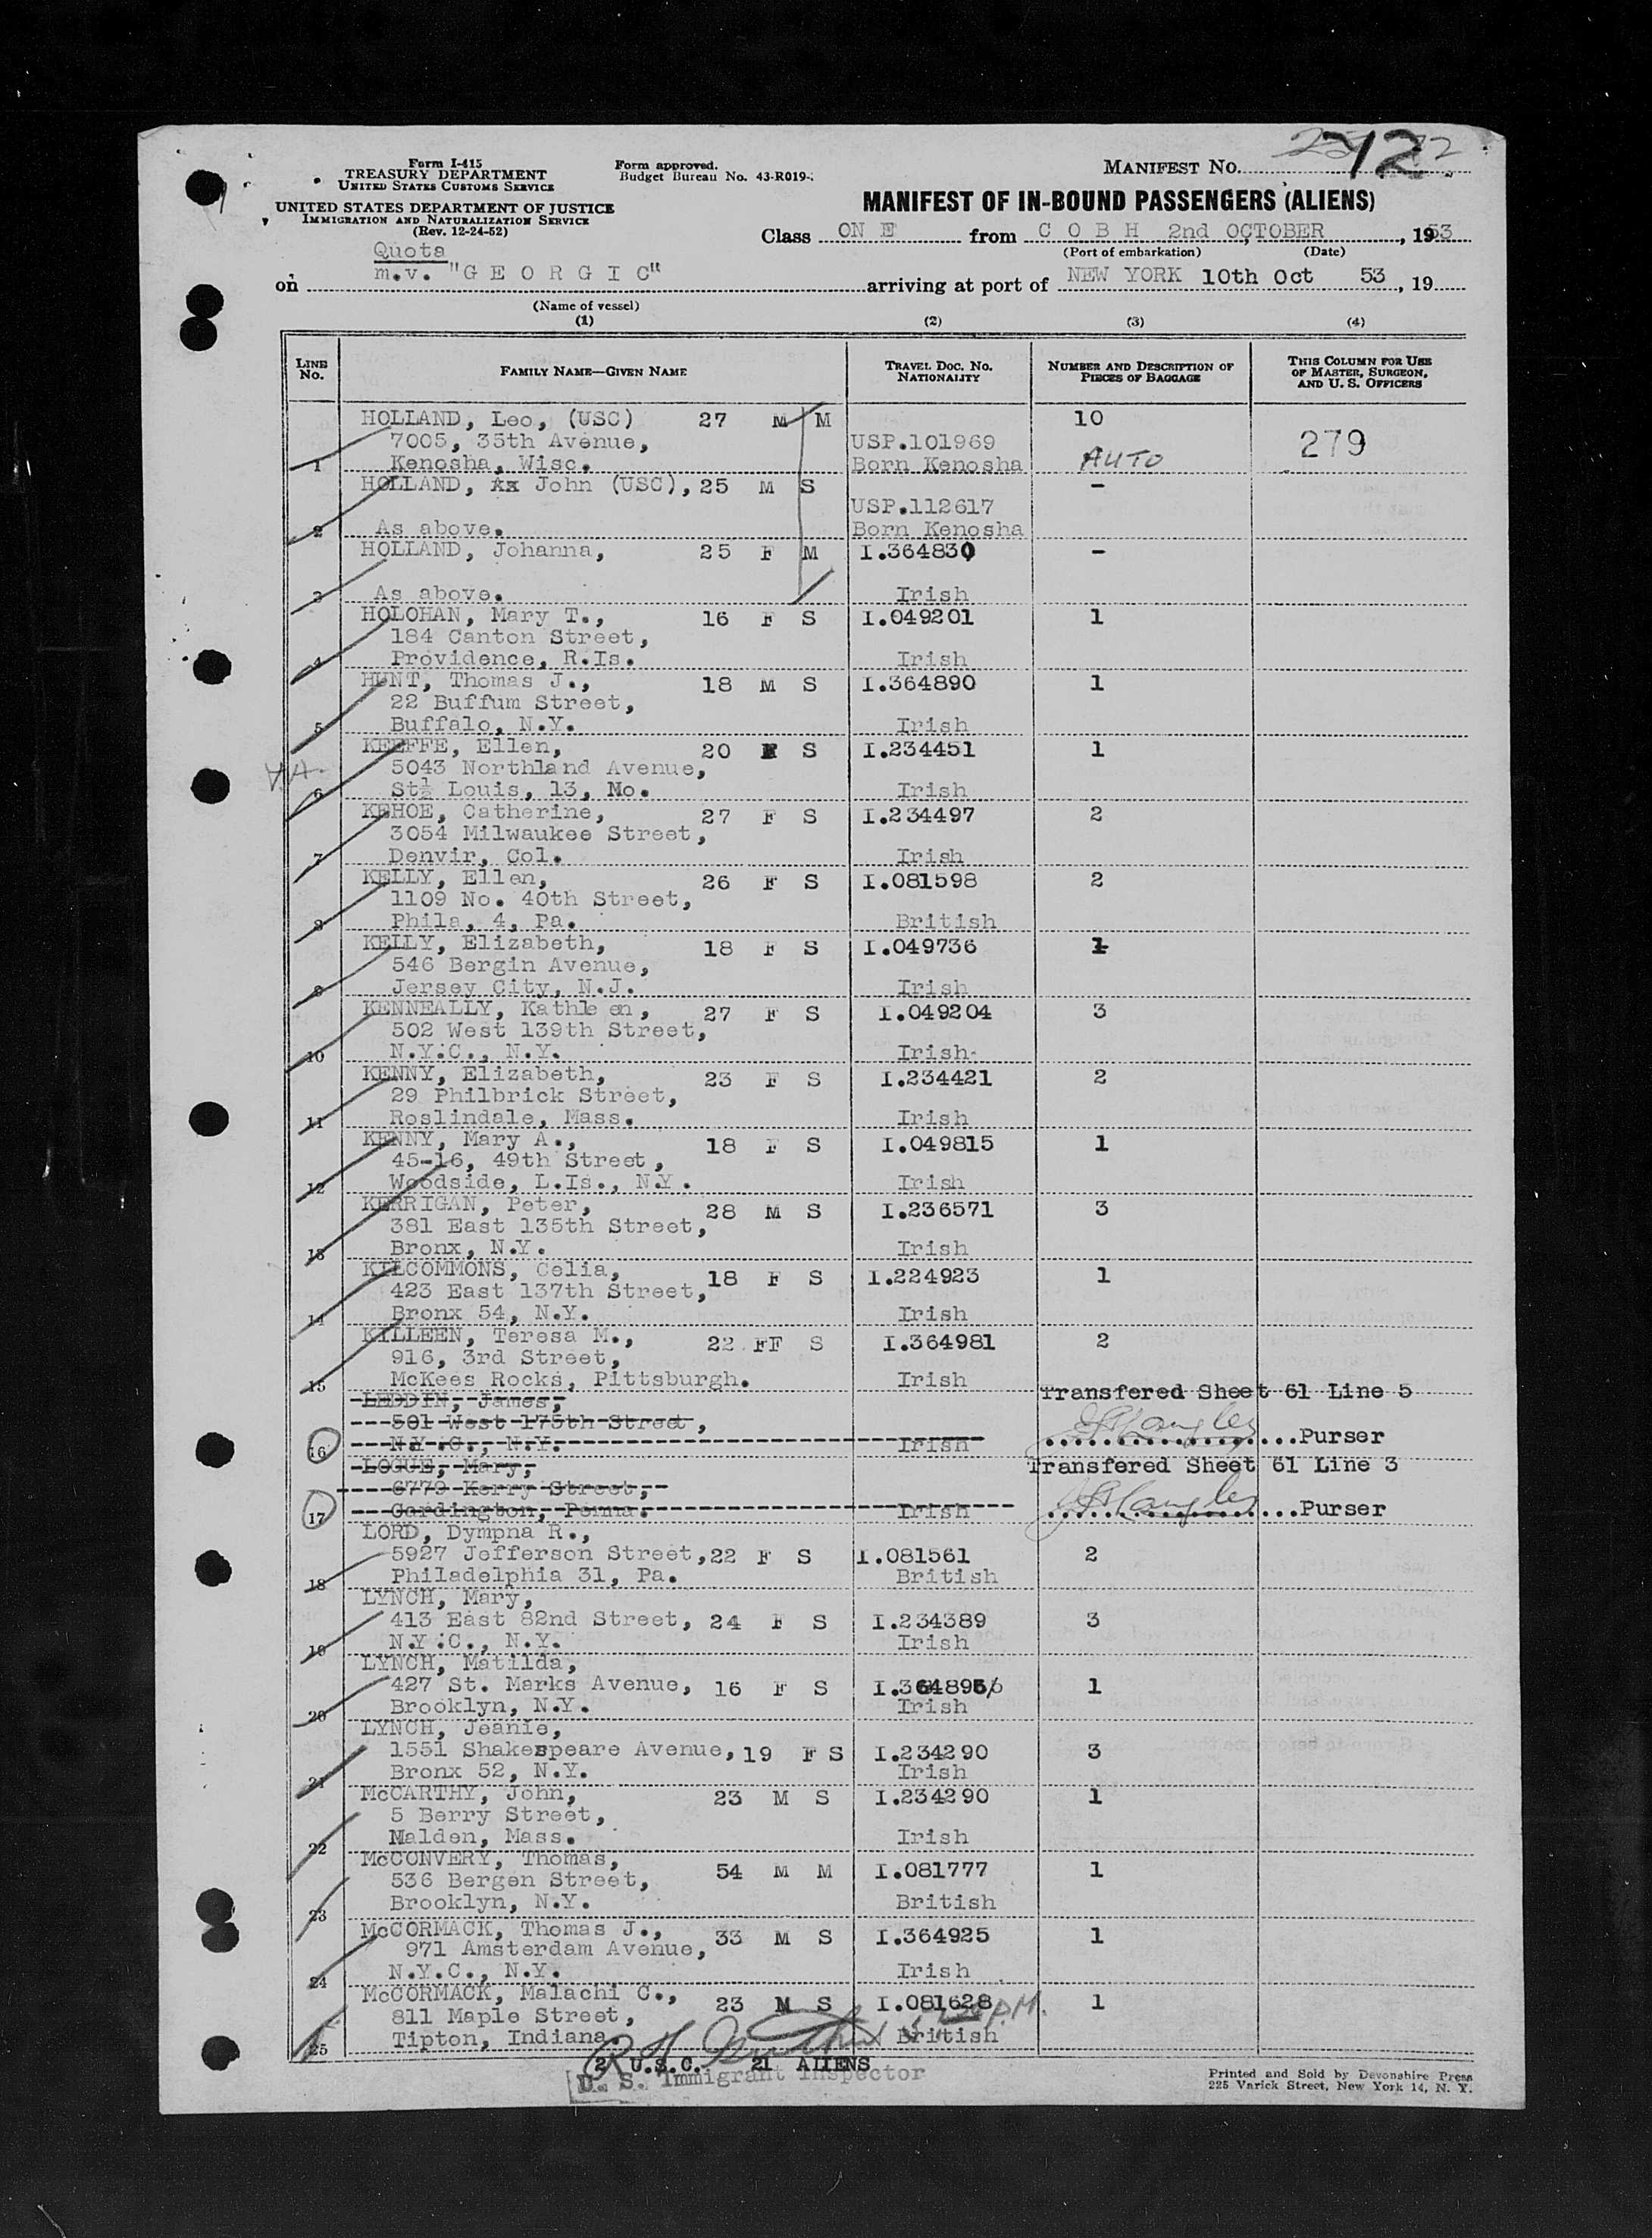 Form I-415
TREASURY DEPARTMENT
UNITED STATES CUSTOMS SERVICE
UNITED STATES DEPARTMENT OF JUSTICE
IMMIGRATION AND NATURALIZATION SERVICE
(Rev. 12-24-52)
Form approved.
Budget Bureau No. 43-R019-
MANIFEST No. 72
MANIFEST OF IN-BOUND PASSENGERS (ALIENS)
Class ON E from C O B H 2nd OCTOBER, 1953
(Port of embarkation) (Date)
Quota
on m.v. "G E O R G I C" arriving at port of NEW YORK 10th Oct 53, 19
(Name of vessel)
(1) (2) (3) (4)
LINE No. FAMILY NAME—GIVEN NAME TRAVEL DOC. NO. NATIONALITY NUMBER AND DESCRIPTION OF PIECES OF BAGGAGE THIS COLUMN FOR USE OF MASTER, SURGEON, AND U. S. OFFICERS
HOLLAND, Leo, (USC) 27 M M 10
7005, 35th Avenue, USP.101969 279
1 Kenosha, Wisc. Born Kenosha AUTO
HOLLAND, John (USC), 25 M S -
USP.112617
2 As above. Born Kenosha
HOLLAND, Johanna, 25 F M I.364830 -
3 As above. Irish
HOLOHAN, Mary T., 16 F S I.049201 1
184 Canton Street,
4 Providence, R.Is. Irish
HUNT, Thomas J., 18 M S I.364890 1
22 Buffum Street,
5 Buffalo, N.Y. Irish
KEEFFE, Ellen, 20 F S I.234451 1
5043 Northland Avenue,
6 St½ Louis, 13, Mo. Irish
KEHOE, Catherine, 27 F S I.234497 2
3054 Milwaukee Street,
7 Denvir, Col. Irish
KELLY, Ellen, 26 F S I.081598 2
1109 No. 40th Street,
8 Phila, 4, Pa. British
KELLY, Elizabeth, 18 F S I.049736 1
546 Bergin Avenue,
9 Jersey City, N.J. Irish
KENNEALLY, Kathleen, 27 F S I.049204 3
502 West 139th Street,
10 N.Y.C., N.Y. Irish
KENNY, Elizabeth, 23 F S I.234421 2
29 Philbrick Street,
11 Roslindale, Mass. Irish
KENNY, Mary A., 18 F S I.049815 1
45-16, 49th Street,
12 Woodside, L.Is., N.Y. Irish
KERRIGAN, Peter, 28 M S I.236571 3
381 East 135th Street,
13 Bronx, N.Y. Irish
KILCOMMONS, Celia, 18 F S I.224923 1
423 East 137th Street,
14 Bronx 54, N.Y. Irish
KILLEEN, Teresa M., 22 FF S I.364981 2
916, 3rd Street,
15 McKees Rocks, Pittsburgh. Irish
LEDDIN, James, Transfered Sheet 61 Line 5
501 West 175th Street,
16 N.Y.C., N.Y. Irish ....Purser
LOGUE, Mary, Transfered Sheet 61 Line 3
6779 Kerry Street,
17 Cardington, Penna. Irish ....Purser
LORD, Dympna R.,
5927 Jefferson Street, 22 F S I.081561 2
18 Philadelphia 31, Pa. British
LYNCH, Mary,
413 East 82nd Street, 24 F S I.234389 3
19 N.Y.C., N.Y. Irish
LYNCH, Matilda,
427 St. Marks Avenue, 16 F S 1
20 Brooklyn, N.Y. Irish
LYNCH, Jeanie,
1551 Shakespeare Avenue, 19 F S I.234290 3
21 Bronx 52, N.Y. Irish
McCARTHY, John, 23 M S I.234290 1
5 Berry Street,
22 Malden, Mass. Irish
McCONVERY, Thomas, 54 M M I.081777 1
536 Bergen Street,
23 Brooklyn, N.Y. British
McCORMACK, Thomas J., 33 M S I.364925 1
971 Amsterdam Avenue,
24 N.Y.C., N.Y. Irish
McCORMACK, Malachi C., 23 M S I.081628 1
811 Maple Street,
25 Tipton, Indiana. British
2 U.S.C. 21 ALIENS
U. S. Immigrant Inspector
Printed and Sold by Devonshire Press
225 Varick Street, New York 14, N. Y.